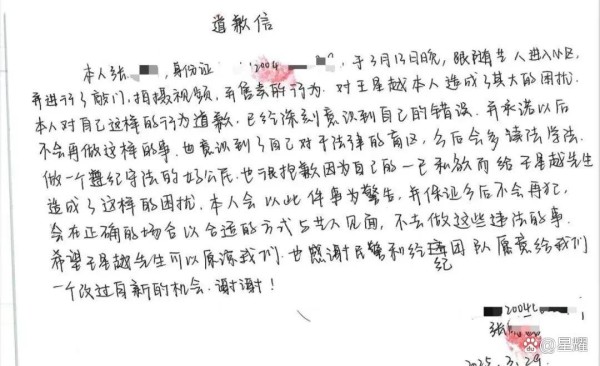 道歉信
本人张 ,身份证 2004 ,于3月13日晚,跟随艺人进入小区,
并进行了敲门,拍摄视频,并售卖的行为.对王星越本人造成了莫大的困扰.
本人对自己这样的行为道歉.已经深刻意识到自己的错误.并承诺以后
不会再做这样的事.也意识到了自己对于法律的盲区,今后会多读法学法.
做一个遵纪守法的好公民.也很抱歉因为自己的一己私欲而给王星越先生
造成了这样的困扰.本人会以此件事为警告,并保证今后不会再犯,
会在正确的场合以合适的方式与艺人见面,不去做这些违法的事.
希望王星越先生可以原谅我们.也感谢民警和经纪团队愿意给我们
一个改过自新的机会.谢谢!
2004
张
2025.3.29
星耀